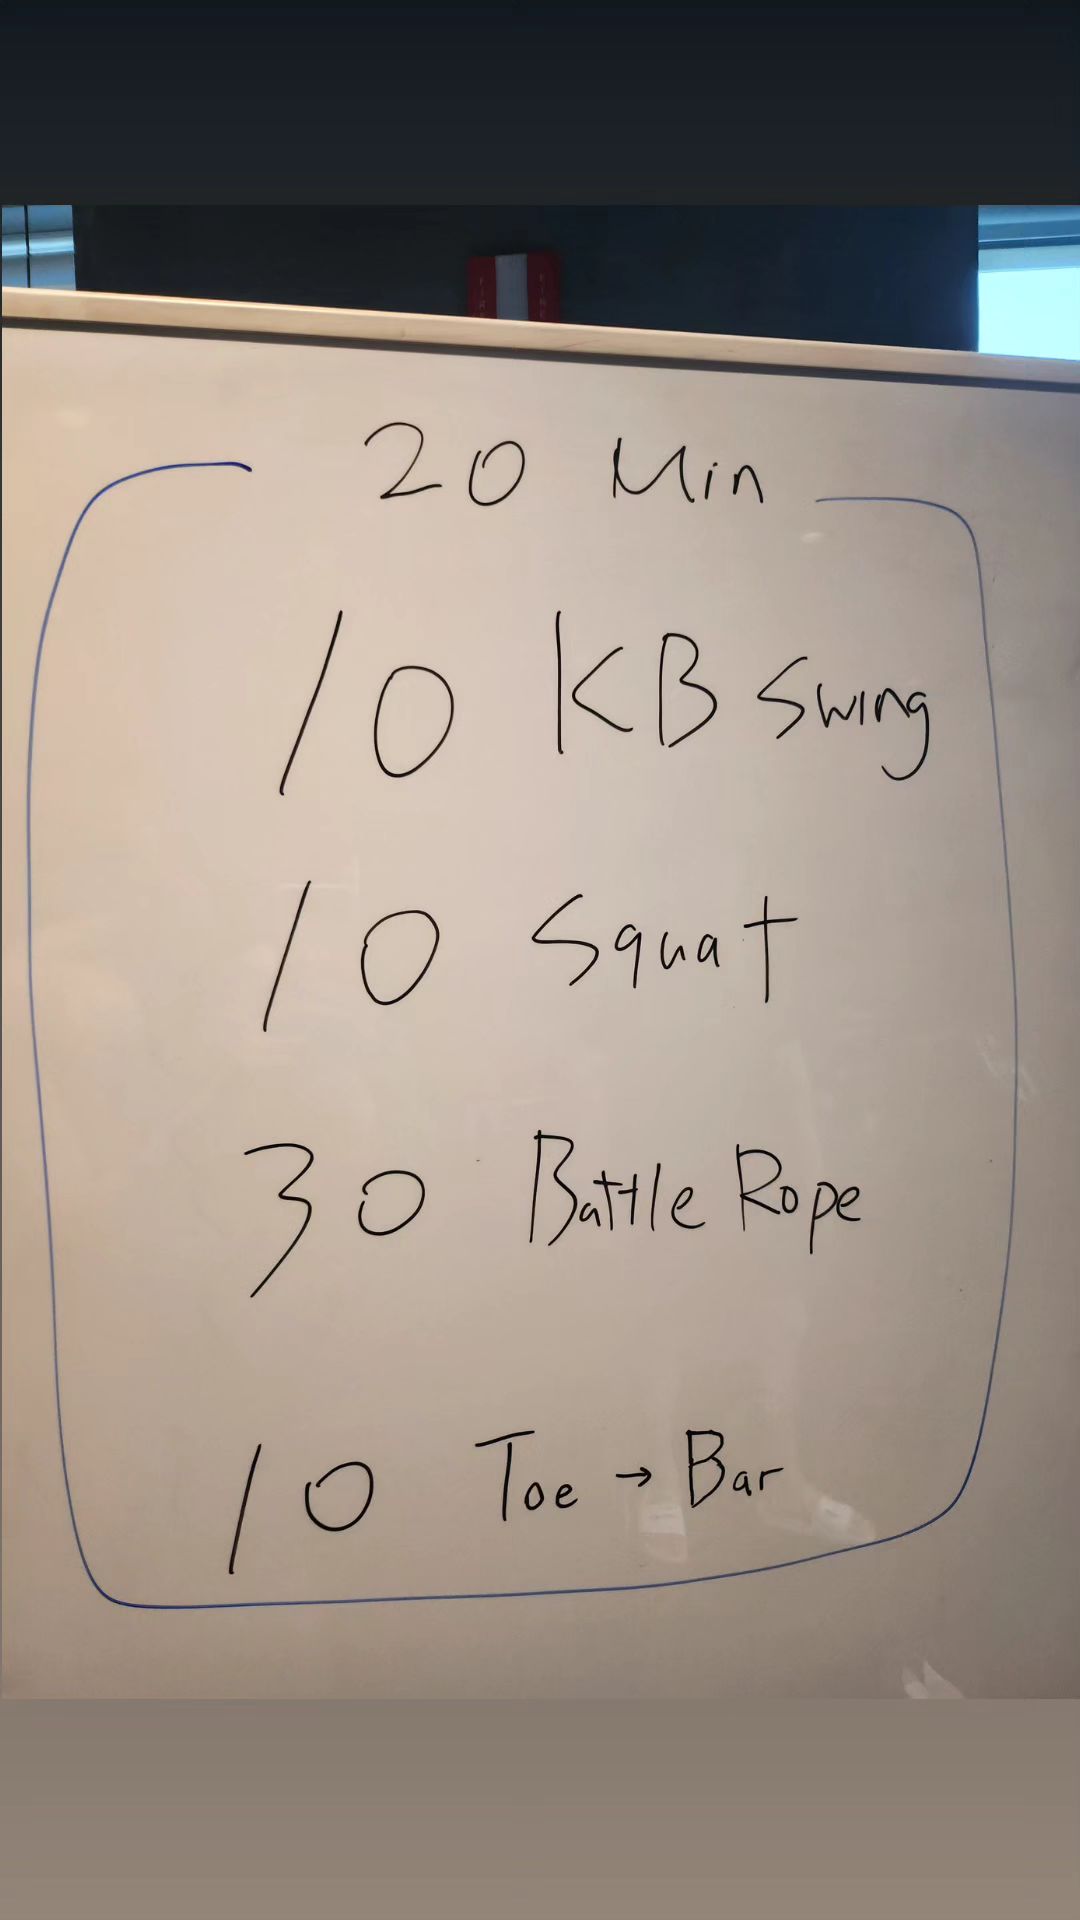 20 Min
10 KB Swing
10 Squat
30 Battle Rope
10 Toe → Bar